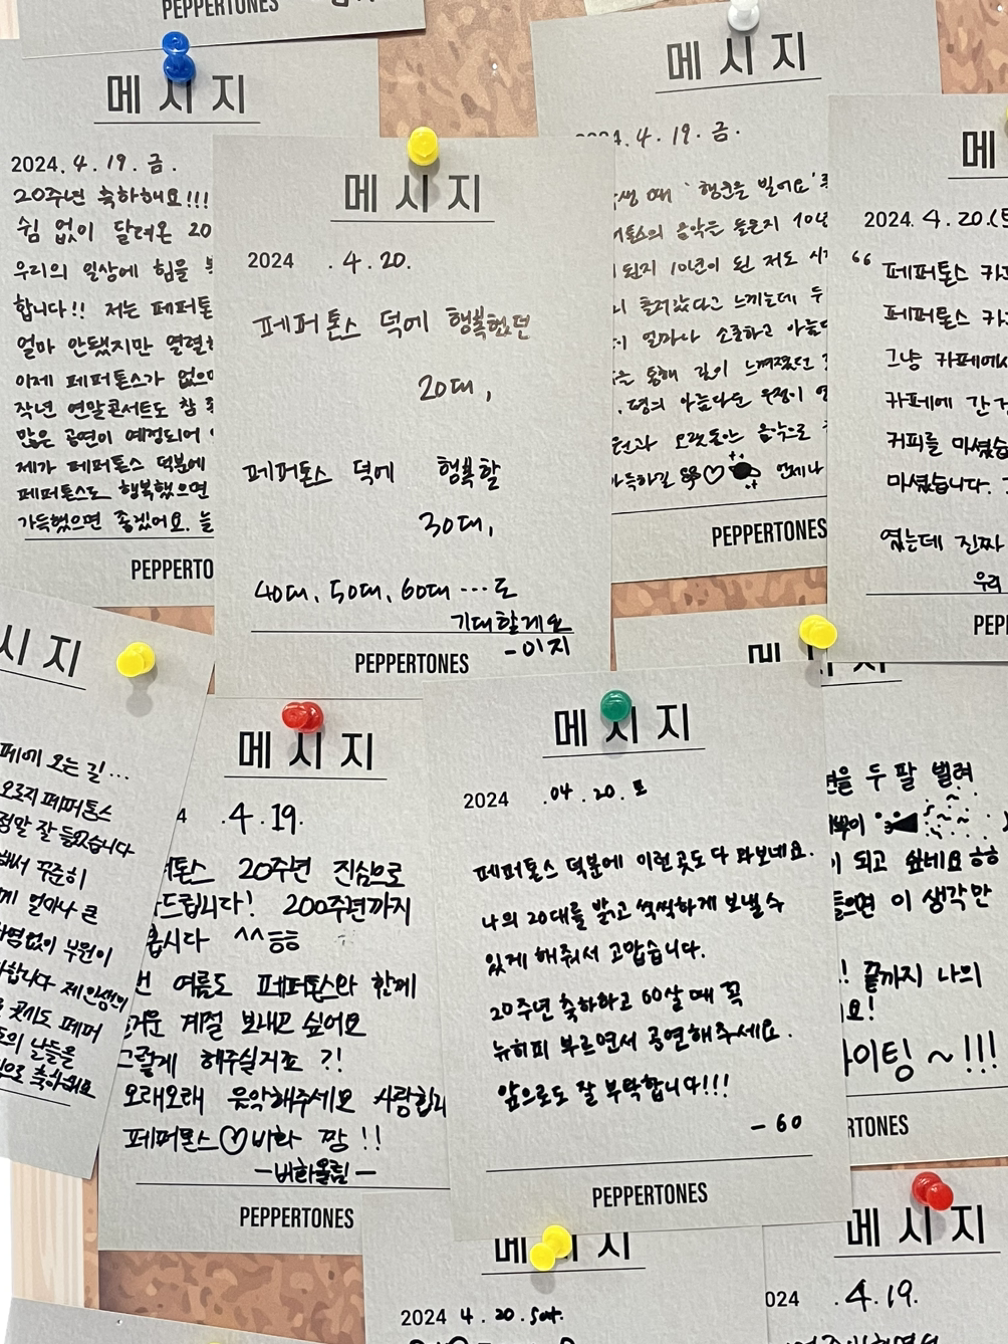 PEPPERTONES
메시지
2024. 4. 19. 금.
20주년 축하해요!!!
쉼 없이 달려온 20
우리의 일상에 힘을
합니다!! 저는 페퍼톤
얼마 안됐지만 열렬
이제 페퍼톤스가 없으
작년 연말콘서트도 참
많은 공연이 예정되어
제가 페퍼톤스 덕분에
페퍼톤스도 행복했으면
가득했으면 좋겠어요. 늘
PEPPERTO
메시지
2024 . 4. 20.
페퍼톤스 덕에 행복했던
20대,
페퍼톤스 덕에 행복할
30대,
40대, 50대, 60대 ...도
기대할게요
- 이지
PEPPERTONES
메시지
4. 19. 금.
때 '행운을 빌어요'
음악을 들은지 10년
된지 10년이 된 저도
흘러갔다고 느끼는데 두
얼마나 소중하고 아름
통해 깊이 느껴졌던
아름다운 우정이
오랫동안 음악으로
언제나
PEPPERTONES
메
2024. 4. 20.(토
“ 페퍼톤스 카
페퍼톤스 카
그냥 카페에서
카페에 간
커피를 마셨습
마셨습니다.
였는데 진짜
우리
PEP
시지
페에 오는 길...
오로지 페퍼톤스
정말 잘 들었습니다
해서 꾸준히
얼마나 큰
없이 부원이
합니다 제 인생의
곳지도 페퍼
의 날들을
으로 축하해요
메시지
4 .4.19.
톤스 20주년 진심으로
드립니다! 200주년까지
봅시다 ^^ㅎㅎ
번 여름도 페퍼톤스와 함께
거운 계절 보내고 싶어요
그렇게 해주실거죠 ?!
오래오래 음악해주세요 사랑합니
페퍼톤스♡바화 짱 !!
PEPPERTONES
메시지
2024 .04 .20. 토
페퍼톤스 덕분에 이런 곳도 다 와보네요.
나의 20대를 밝고 씩씩하게 보낼 수
있게 해줘서 고맙습니다.
20주년 축하하고 60살 때 꼭
뉴히피 부르면서 공연해주세요.
앞으로도 잘 부탁합니다!!!
- 60
PEPPERTONES
두 팔 벌려
되고 싶네요 ㅎㅎ
들으면 이 생각만
! 끝까지 나의
요!
파이팅 ~!!!
RTONES
메시지
2024 4. 20. Sat.
메시지
024 .4.19.